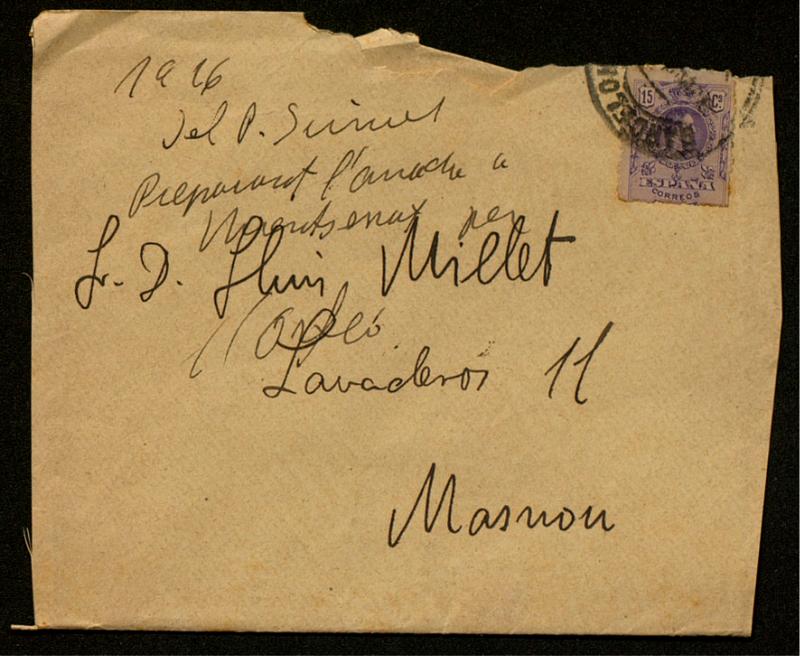 1916
Del P. Sunyol
Preparant l'anada a
Montserrat per
Sr. D. Lluis Millet
l'Orfeó
Lavaderos 11
Masnou
15 Cs
ESPAÑA
CORREOS
BARCELONA